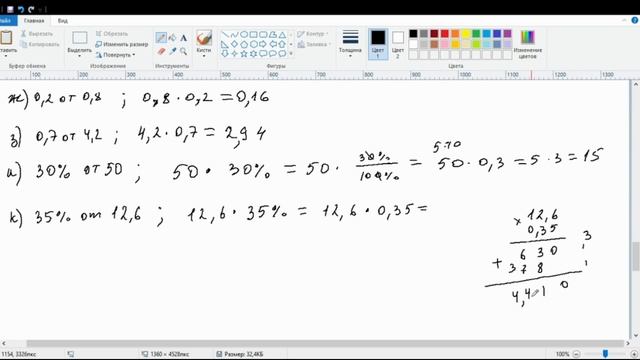 Главная
Вид
Вставить
Выделить
Обрезать
Изменить размер
Повернуть
Кисти
Контур
Заливка
Толщина
Цвет 1
Цвет 2
Изменение цветов
Буфер обмена
Изображение
Инструменты
Фигуры
Цвета
100 200 300 400 500 600 700 800 900 1000 1100 1200 1300
ж) 0,2 от 0,8 ; 0,8 · 0,2 = 0,16
з) 0,7 от 4,2 ; 4,2 · 0,7 = 2,94
5·10
и) 30% от 50 ; 50 · 30% = 50 · 30%/100% = 50 · 0,3 = 5 · 3 = 15
к) 35% от 12,6 ; 12,6 · 35% = 12,6 · 0,35 =
× 12,6
0,35
6 3 0 3
+ 3 7 8 1
4,4 1 0
1154, 332пкс
1360 × 4528пкс
Размер: 32,4КБ
100%